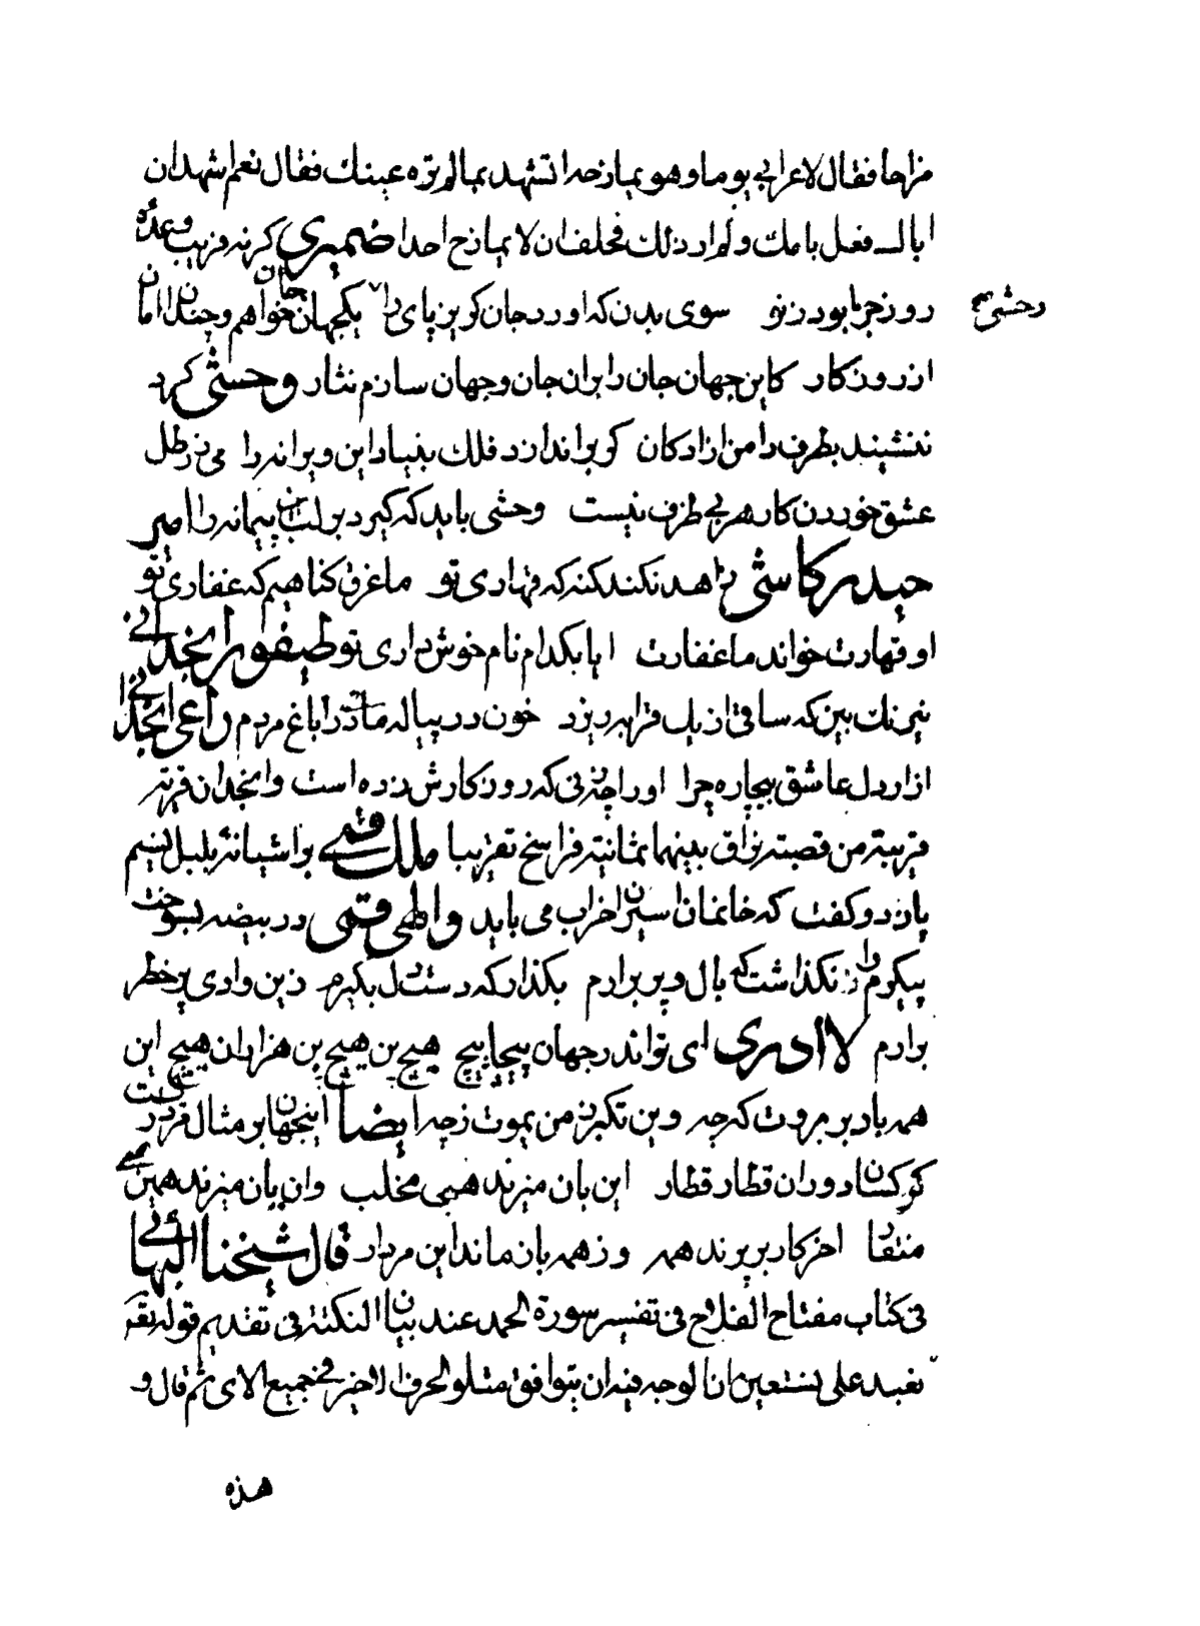 مزاحا فقال لاعرابی یوما وهو یمازحه اتشهد بمالم تره عینك فقال نعم اشهدان
اباك فعل بامك ولم ار ذلك فحلف ان لا یمازح احدا ضمیری کرنه فریب وعدهٔ
روز جزا بود زتو سوی بدن که اورد جان کریز پای را یکجهان جان خواهم وچندان امان
از روزکار کاین جهان جان را بران جان وجهان سازم نثار وحشی کرد
ننشیند بطرف دامن ازادکان کر براندازد فلك بنیاد این ویرانه را می ز رطل
عشق خوردن کار هر بی ظرف نیست وحشی باید که کیرد بر لب ان پیمانه را امیر
حیدر کاشی زاهد نکند کنه که قهاری تو ما غرق کناهیم که غفاری تو
او قهارت خواند ما غفارت ایا بکدام نام خوش داری تو طیفور انجدانی
نیرنك بین که ساقی از یك قرابه ریزد خون در پیاله ما می در ایاغ مردم راعی انجدانی
ازار دل عاشق بیچاره چرا اورا چه زنی که روزکارش زده است وانجدان قریة
قریبة من قصبة نراق بینهما ثمانیة فراسخ تقریبا ملك قمی بر اشیانهٔ بلبل نسیم
پا زد وکفت که خانمان اسیران خراب می باید والهی قمی در بیضه بسوخت
پیکرم را نکذاشت که بال وپر برارم بکذار که دست دل بکیرم زین وادی پر خطر
برارم لاادری ای تو اندر جهان پیچاپیچ هیچ بن هیچ بن هزاران هیچ این
همه باد بر بروت که چه وین تکبر زمن بموت زچه ایضا اینجهان بر مثال مردارست
کرکسان دوران قطار قطار این بان میزند همی مخلب وان باین میزند همی
منقار اخر کار بر پرند همه وز همه بان ماند این مردار قال شیخنا البهائی
فی کتاب مفتاح الفلاح فی تفسیر سورة الحمد عند بیان النکتة فی تقدیم قوله تع
نعبد علی نستعین ان الوجه فیه ان یتوافق متلو الحرف الاخیر فی جمیع الای ثم قال و
هذه
وحشی